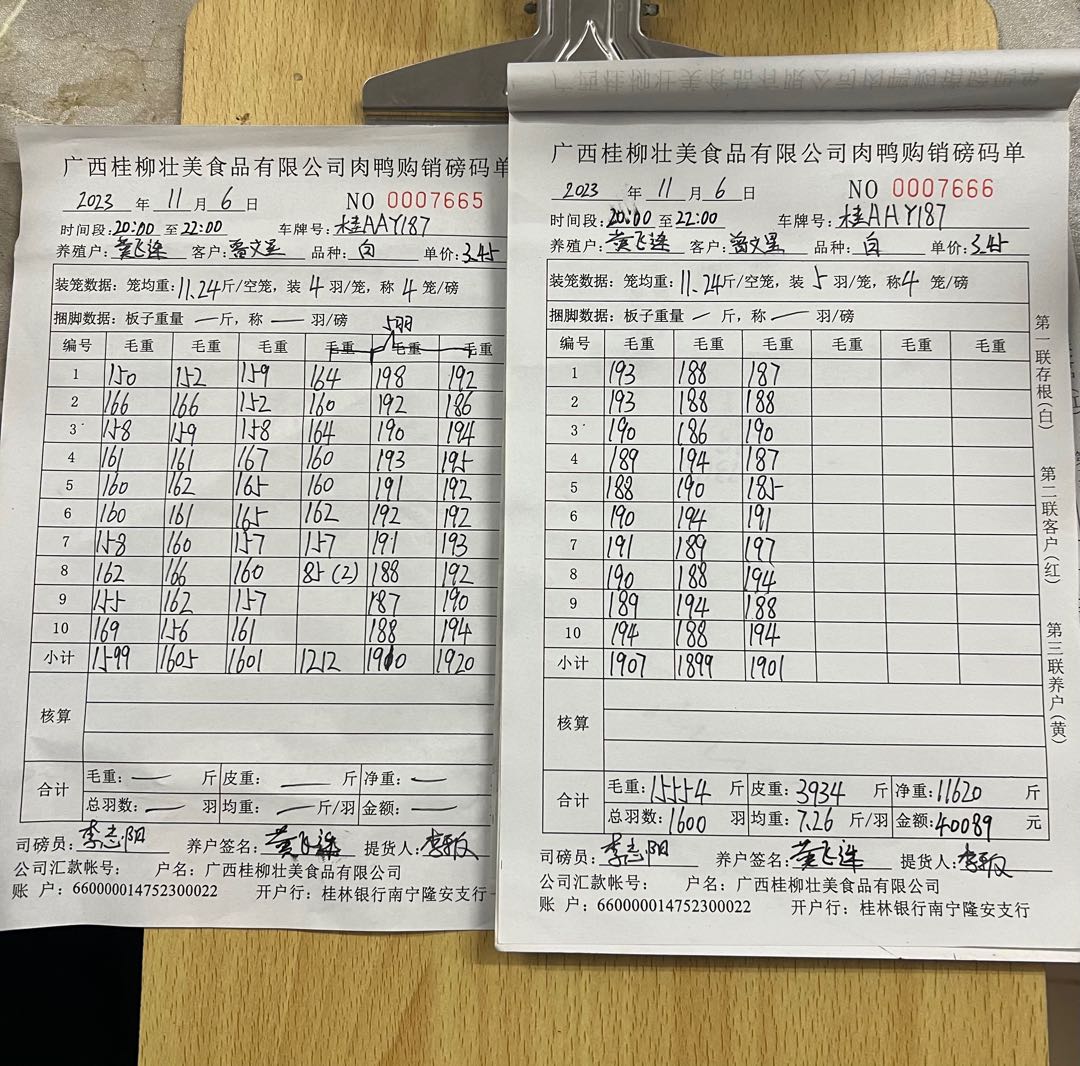 广西桂柳壮美食品有限公司肉鸭购销磅码单
2023 年 11 月 6 日 NO 0007665
时间段: 20:00 至 22:00 车牌号: 桂AAY187
养殖户: 黄飞 客户: 文星 品种: 白 单价: 3.45
装笼数据: 笼均重: 11.24 斤/空笼, 装 4 羽/笼, 称 4 笼/磅
捆脚数据: 板子重量 一 斤, 称 一 羽/磅 5羽
编号 毛重 毛重 毛重 毛重 毛重 毛重
1 150 152 159 164 198 192
2 166 166 152 160 192 186
3 158 159 158 164 190 194
4 161 161 167 160 193 195
5 160 162 165 160 191 192
6 160 161 165 162 192 192
7 158 160 157 157 191 193
8 162 166 160 85(2) 188 192
9 155 162 157 187 190
10 169 156 161 188 194
小计 1599 1605 1601 1212 1910 1920
核算
合计 毛重: — 斤 皮重: — 斤 净重: —
总羽数: — 羽 均重: — 斤/羽 金额: —
司磅员: 李志阳 养户签名: 黄飞 提货人: 李
公司汇款帐号: 户名: 广西桂柳壮美食品有限公司
账 户: 660000014752300022 开户行: 桂林银行南宁隆安支行
广西桂柳壮美食品有限公司肉鸭购销磅码单
2023 年 11 月 6 日 NO 0007666
时间段: 20:00 至 22:00 车牌号: 桂AAY187
养殖户: 黄飞 客户: 文星 品种: 白 单价: 3.45
装笼数据: 笼均重: 11.24 斤/空笼, 装 5 羽/笼, 称 4 笼/磅
捆脚数据: 板子重量 一 斤, 称 一 羽/磅
编号 毛重 毛重 毛重 毛重 毛重 毛重
1 193 188 187
2 193 188 188
3 190 186 190
4 189 194 187
5 188 190 185
6 190 194 191
7 191 189 197
8 190 188 194
9 189 194 188
10 194 188 194
小计 1907 1899 1901
核算
合计 毛重: 15554 斤 皮重: 3934 斤 净重: 11620 斤
总羽数: 1600 羽 均重: 7.26 斤/羽 金额: 40089 元
司磅员: 李志阳 养户签名: 黄飞 提货人: 李
公司汇款帐号: 户名: 广西桂柳壮美食品有限公司
账 户: 660000014752300022 开户行: 桂林银行南宁隆安支行
第一联存根(白)
第二联客户(红)
第三联养户(黄)